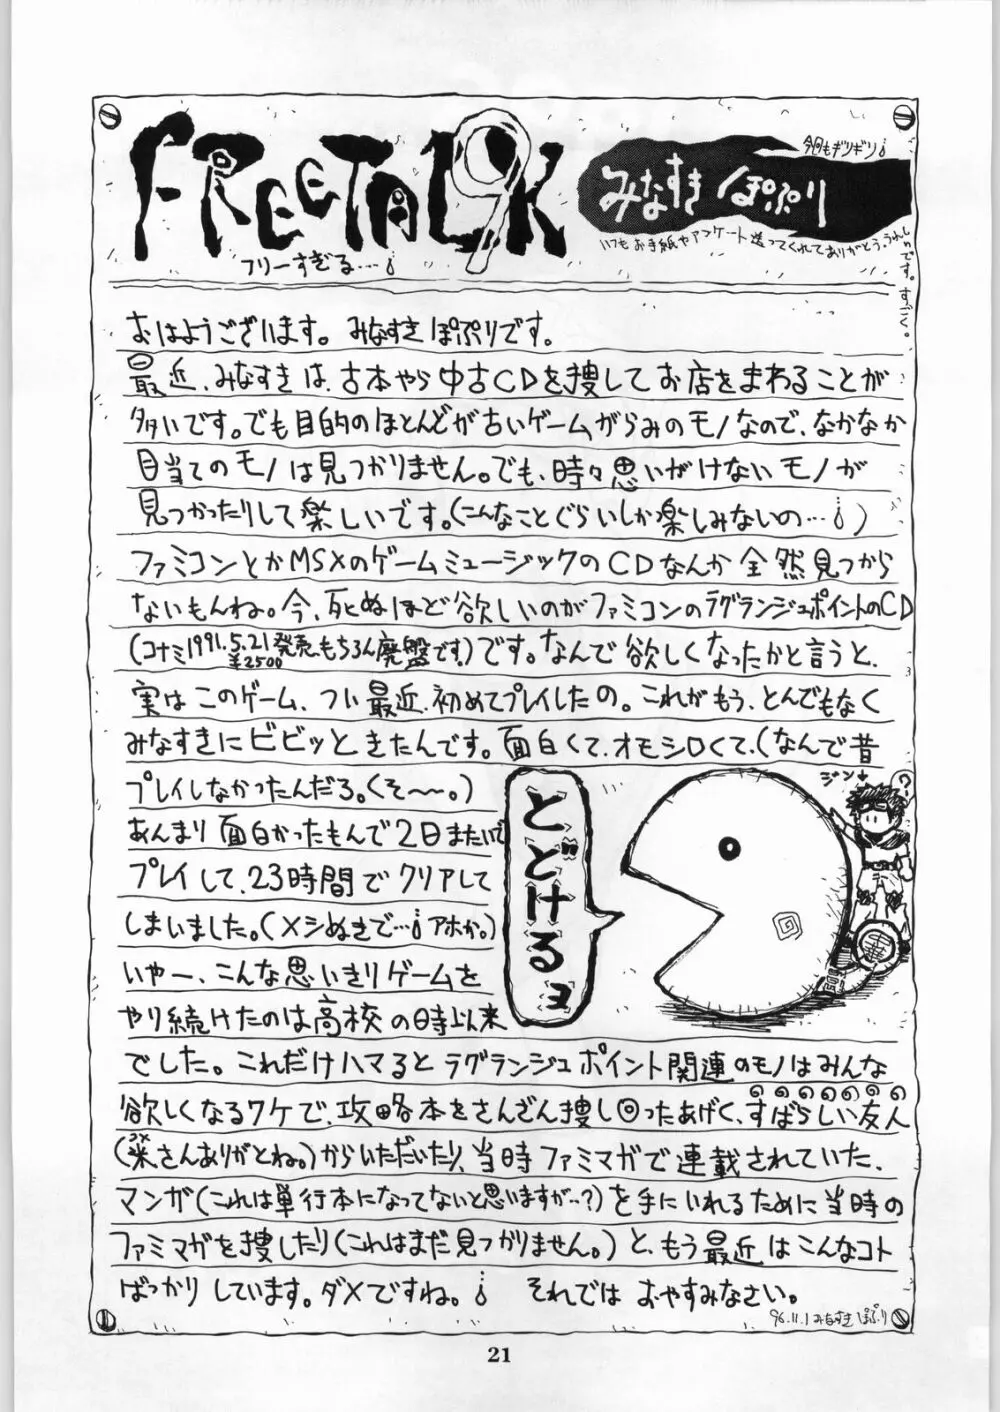 FREE TALK 9
フリーすぎる…
今回もギリギリ
みなすき ぽぷり
いつもお手紙やアンケート送ってくれてありがとう。うれしいです。すごく。
おはようございます。みなすき ぽぷりです。
最近、みなすきは、古本やら中古CDを捜してお店をまわることが
多いです。でも目的のほとんどが古いゲームがらみのモノなので、なかなか
目当てのモノは見つかりません。でも、時々思いがけないモノが
見つかったりして楽しいです。(こんなことぐらいしか楽しみないの…)
ファミコンとかMSXのゲームミュージックのCDなんか全然見つから
ないもんね。今、死ぬほど欲しいのがファミコンのラグランジュポイントのCD
(コナミ1991.5.21発売、もちろん廃盤です。)です。なんで欲しくなったかと言うと、
¥2500
実はこのゲーム、つい最近、初めてプレイしたの。これがもう、とんでもなく
みなすきにビビッときたんです。面白くて、オモシロくて、(なんで昔
プレイしなかったんだろ。くそ〜。)
あんまり面白かったもんで2日またいで
プレイして、23時間でクリアして
しまいました。(メシぬきで…アホか。)
いやー、こんな思いきりゲームを
やり続けたのは高校の時以来
でした。これだけハマるとラグランジュポイント関連のモノはみんな
欲しくなるワケで、攻略本をさんざん捜し回ったあげく、すばらしい友人
(米さんありがとね。)からいただいたり、当時ファミマガで連載されていた、
マンガ(これは単行本になってないと思いますが…?)を手にいれるために当時の
ファミマガを捜したり(これはまだ見つかりません。)と、もう最近はこんなコト
ばっかりしています。ダメですね。 それでは おやすみなさい。
とどけるヨ
ジン
?
'96.11.1 みなすき ぽぷり
21